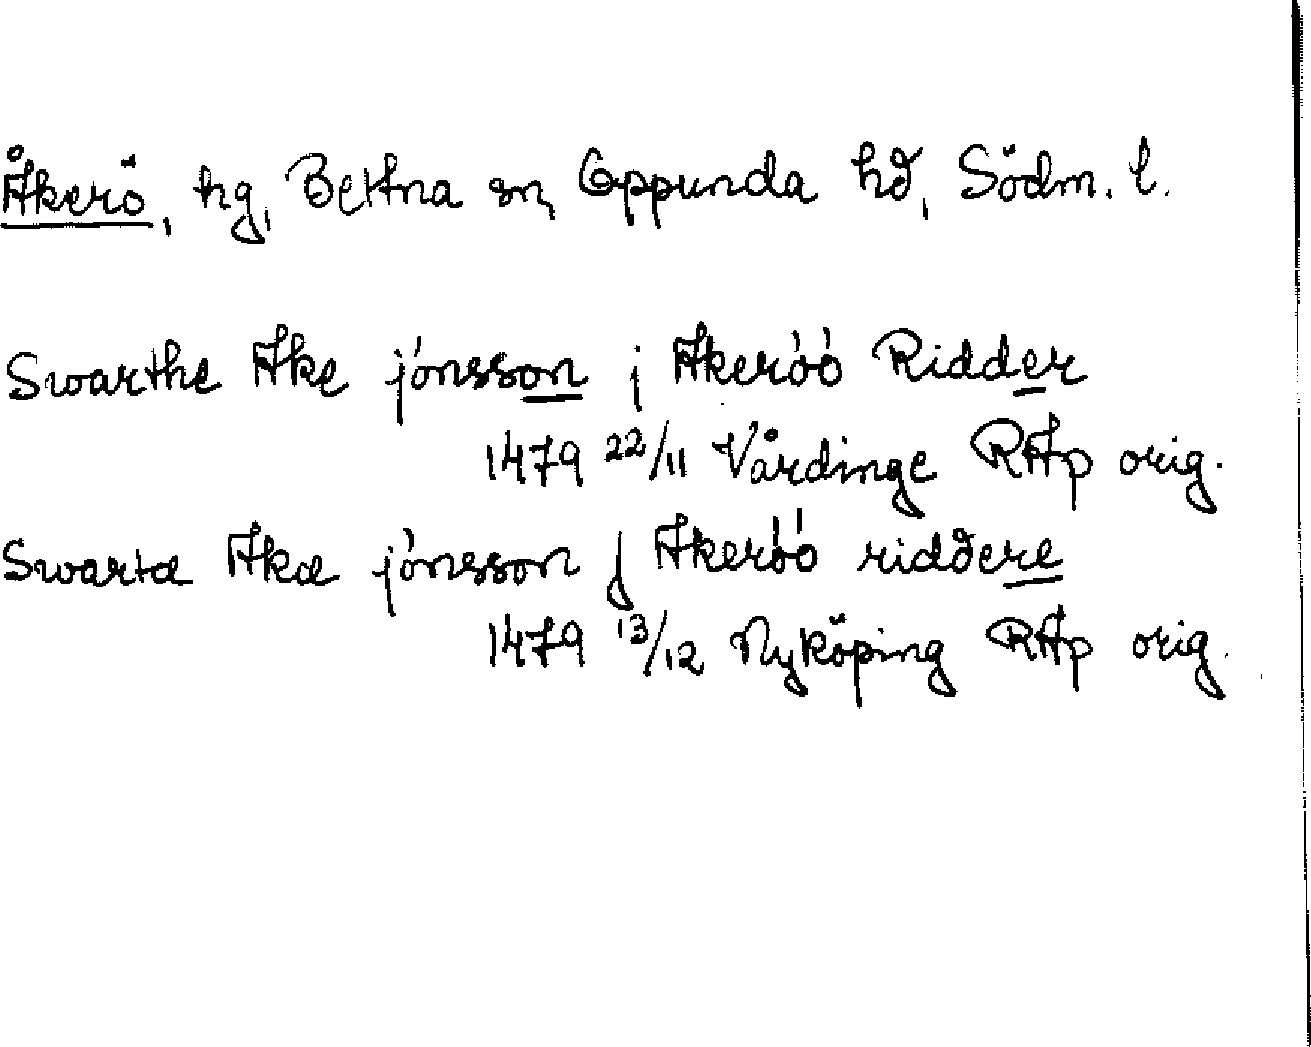 Åkerö, hg, Bettna sn, Oppunda hd, Södm. l.
Swarthe Ake jónsson j Akeróó Ridder
1479 22/11 Vårdinge RAp orig.
Swarta Aka jónsson j Akeróó riddere
1479 13/12 Nyköping RAp orig.